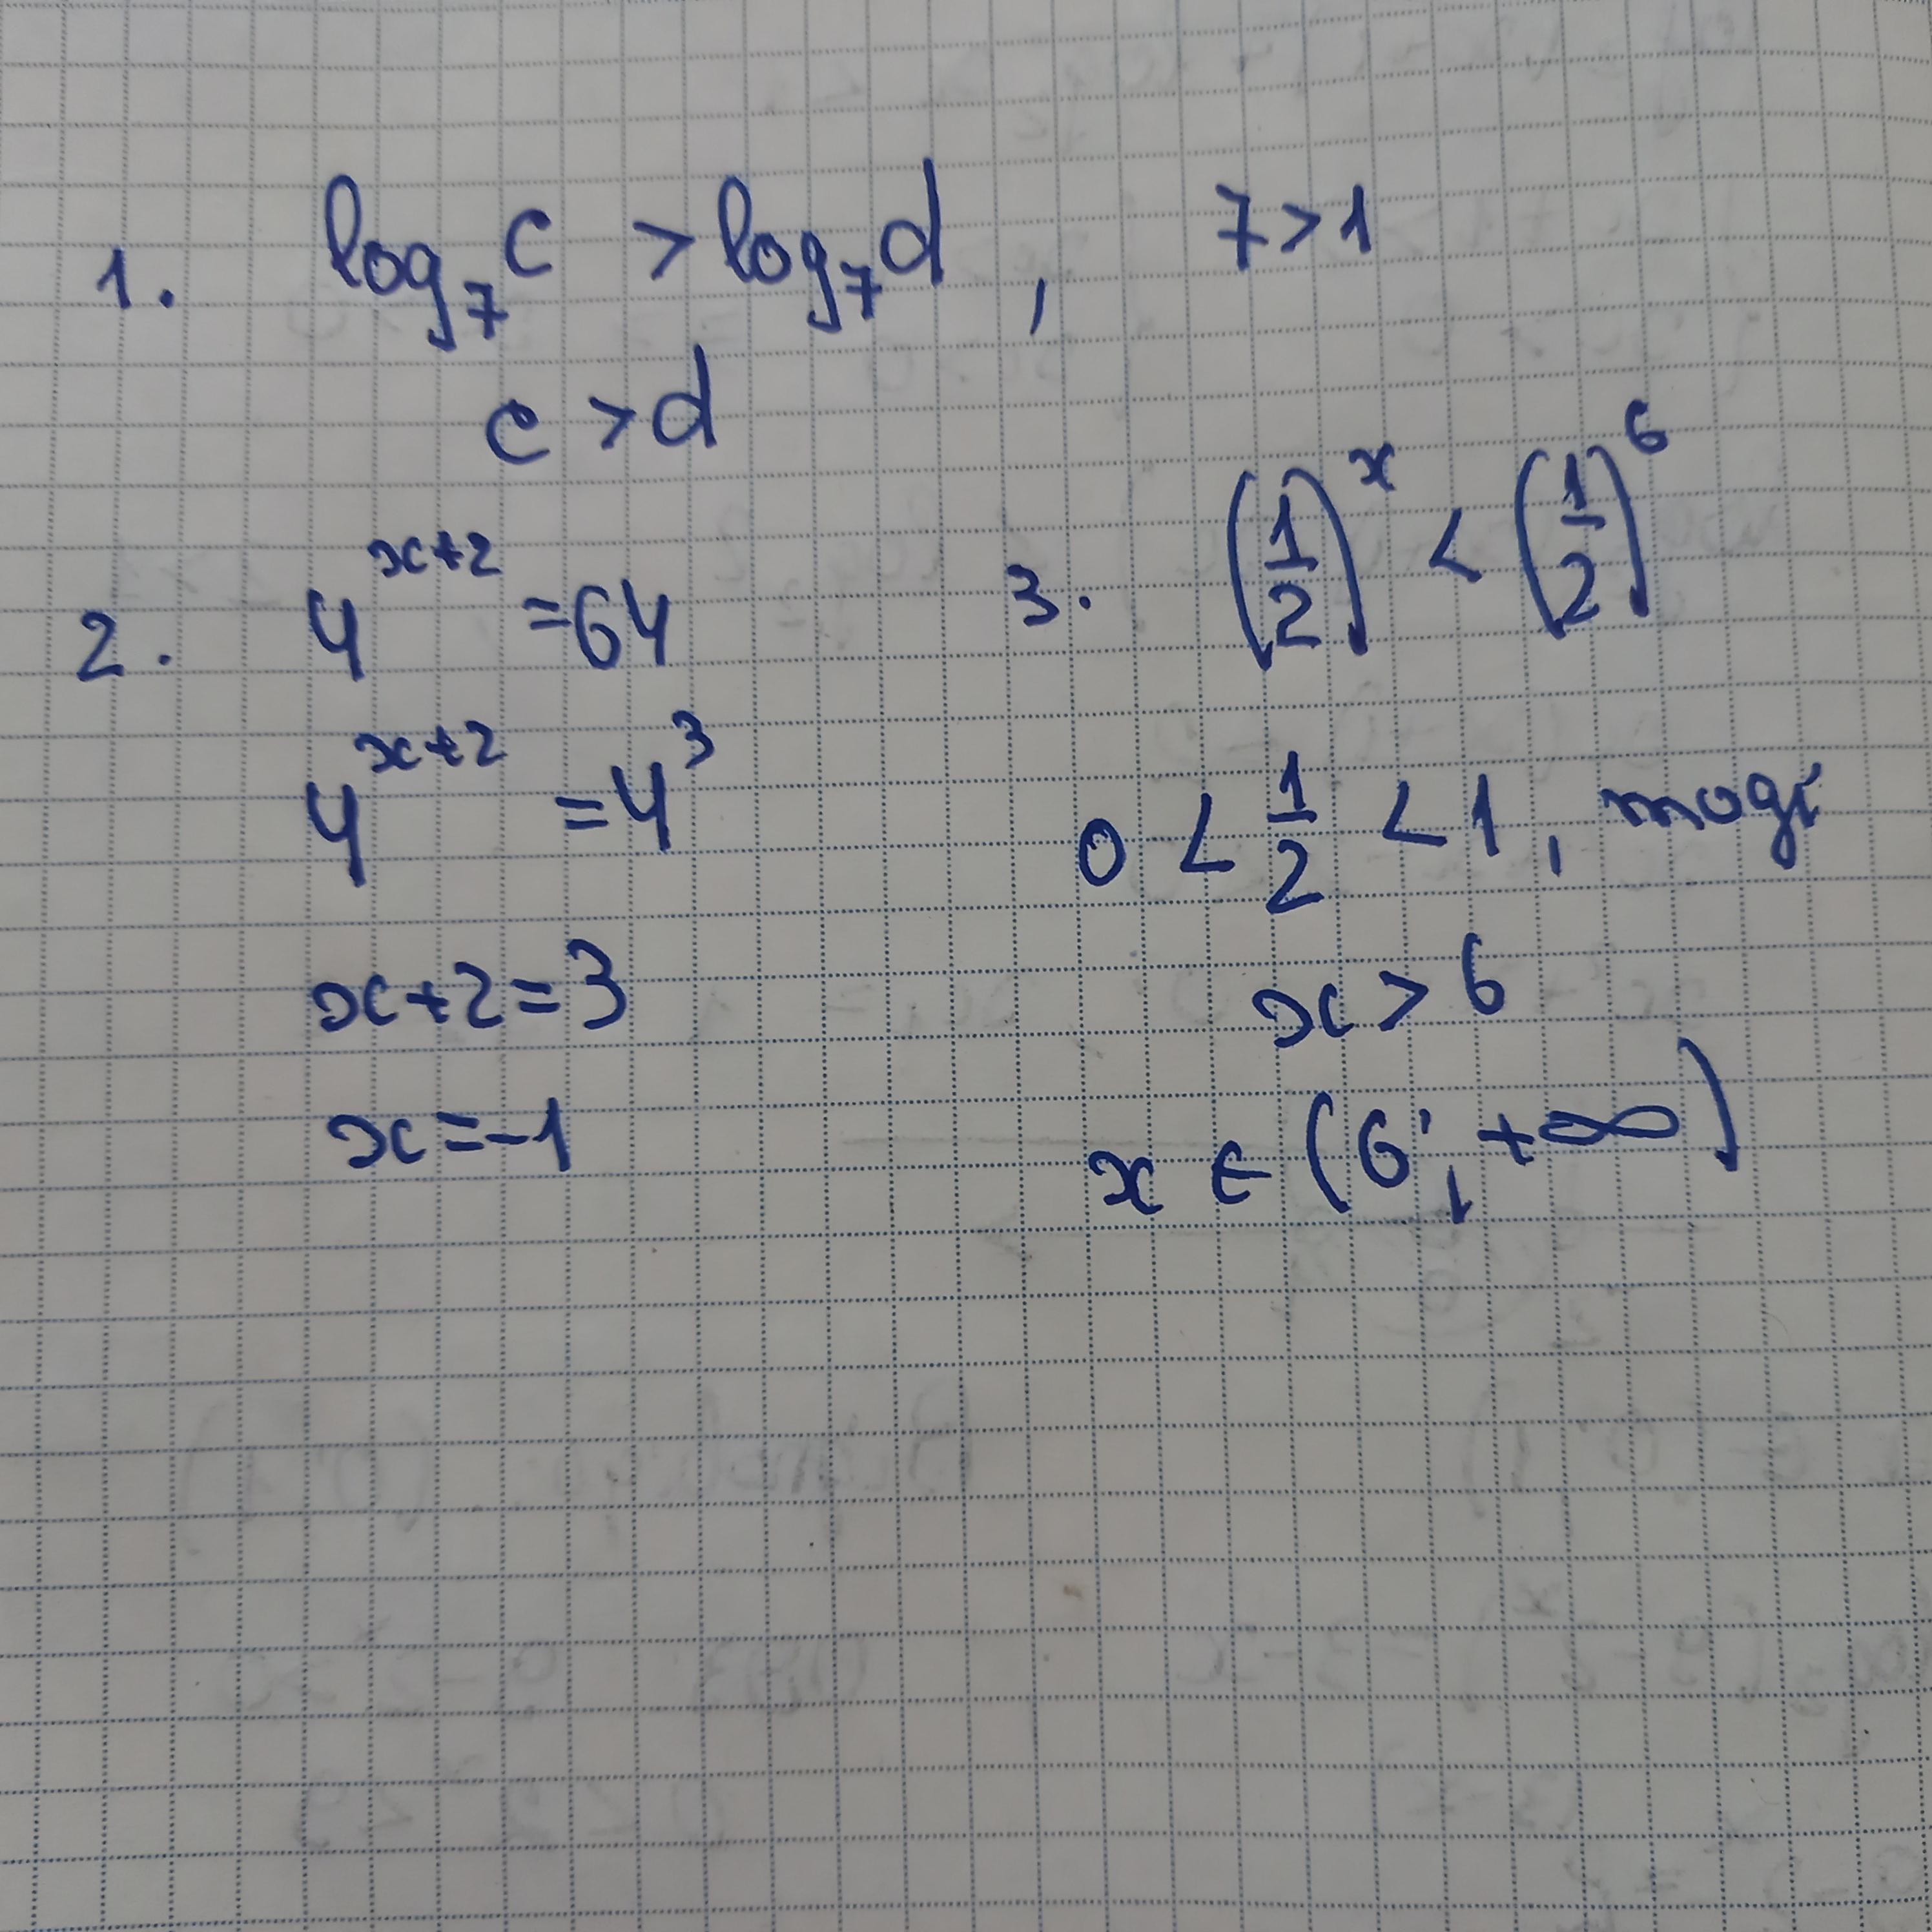 1. log₇c > log₇d, 7>1
c > d
2. 4^(x+2) = 64
4^(x+2) = 4³
x+2=3
x=-1
3. (1/2)^x < (1/2)^6
0 < 1/2 < 1, тоді
x > 6
x ∈ (6; +∞)